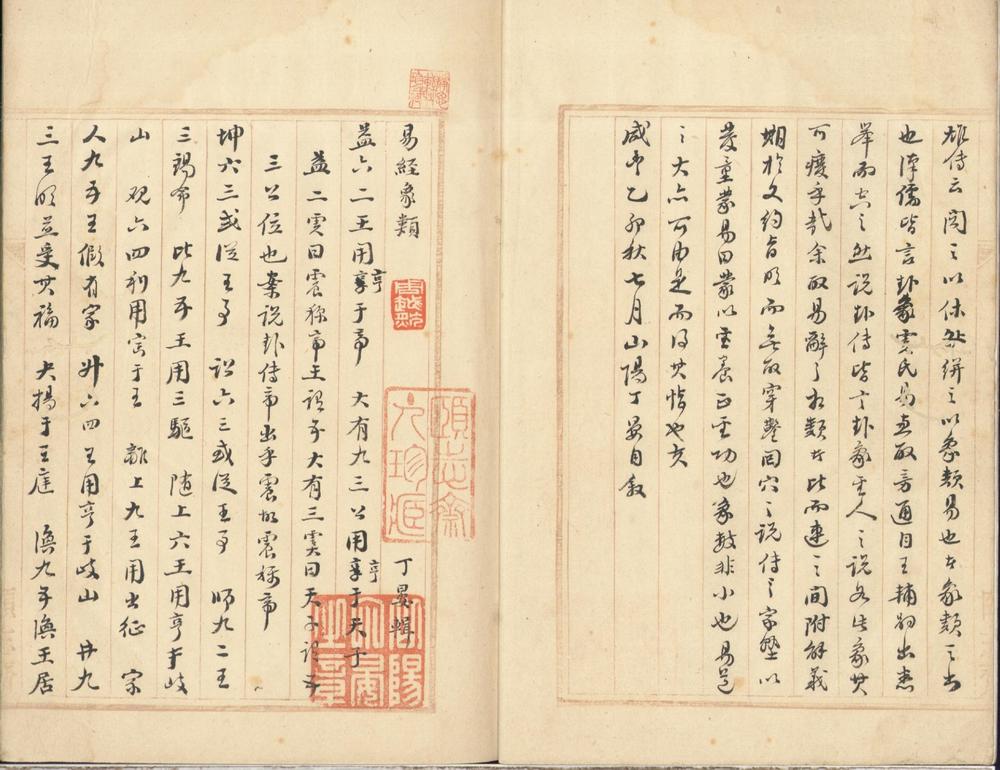 雄傳云閱之以休咎絣之以象類易也本象類之出
也漢儒皆言卦象虞氏易直取旁通自王輔嗣出悉
舉而空之然說卦傳皆言卦象聖人之說如此象其
可廢乎哉余取易辭之相類者比而連之間附解義
期於文約旨明而無取穿鑿回穴之說傳之家塾以
發童蒙易曰蒙以養正聖功也象數非小也易道
之大亦可由是而得其恉也夫
咸豐乙卯秋七月山陽丁晏自敘
易經象類
丁晏輯
益六二王用享于帝 大有九三公用享于天子
亨
亨
益二虞曰震稱帝王謂五大有三虞曰天子謂五
三公位也案說卦傳帝出乎震故震稱帝
坤六三或從王事 訟六三或從王事 師九二王
三錫命 比九五王用三驅 隨上六王用亨于岐
山 觀六四利用賓于王 離上九王用出征 家
人九五王假有家 升六四王用亨于岐山 井九
三王明並受其福 夬揚于王庭 渙九五渙王居
頤志齋
山陽丁晏之章